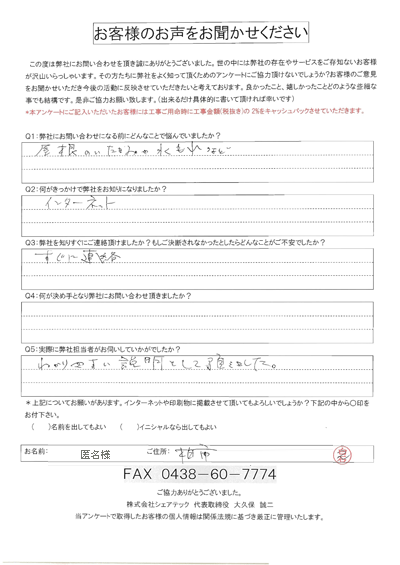 お客様のお声をお聞かせください
この度は弊社にお問い合わせを頂き誠にありがとうございました。世の中には弊社の存在やサービスをご存知ないお客様
が沢山いらっしゃいます。その方たちに弊社をよく知って頂くためのアンケートにご協力頂けないでしょうか?お客様のご意見
をお聞かせいただき今後の活動に反映させていただきたいと考えております。良かったこと、嬉しかったことどのような些細な
事でも結構です。是非ご協力お願い致します。(出来るだけ具体的に書いて頂ければ幸いです)
*本アンケートにご記入いただいたお客様には工事ご用命時に工事金額(税抜き)の 2%をキャッシュバックさせていただきます。
Q1:弊社にお問い合わせになる前にどんなことで悩んでいましたか?
屋根のいたみや水もれなど
Q2:何がきっかけで弊社をお知りになりましたか?
インターネット
Q3:弊社を知りすぐにご連絡頂けましたか?もしご決断されなかったとしたらどんなことがご不安でしたか?
すぐに連絡
Q4:何が決め手となり弊社にお問い合わせ頂きましたか?
Q5:実際に弊社担当者がお伺いしていかがでしたか?
わかりやすい説明をして頂きました。
*上記についてお願いがあります。インターネットや印刷物に掲載させて頂いてもよろしいでしょうか?下記の中から〇印を
お付下さい。
( )名前を出してもよい ( )イニシャルなら出してもよい
お名前: 匿名様 ご住所: 柏市
FAX 0438-60-7774
ご協力ありがとうございました。
株式会社シェアテック 代表取締役 大久保 誠二
当アンケートで取得したお客様の個人情報は関係法規に基づき厳正に管理いたします。